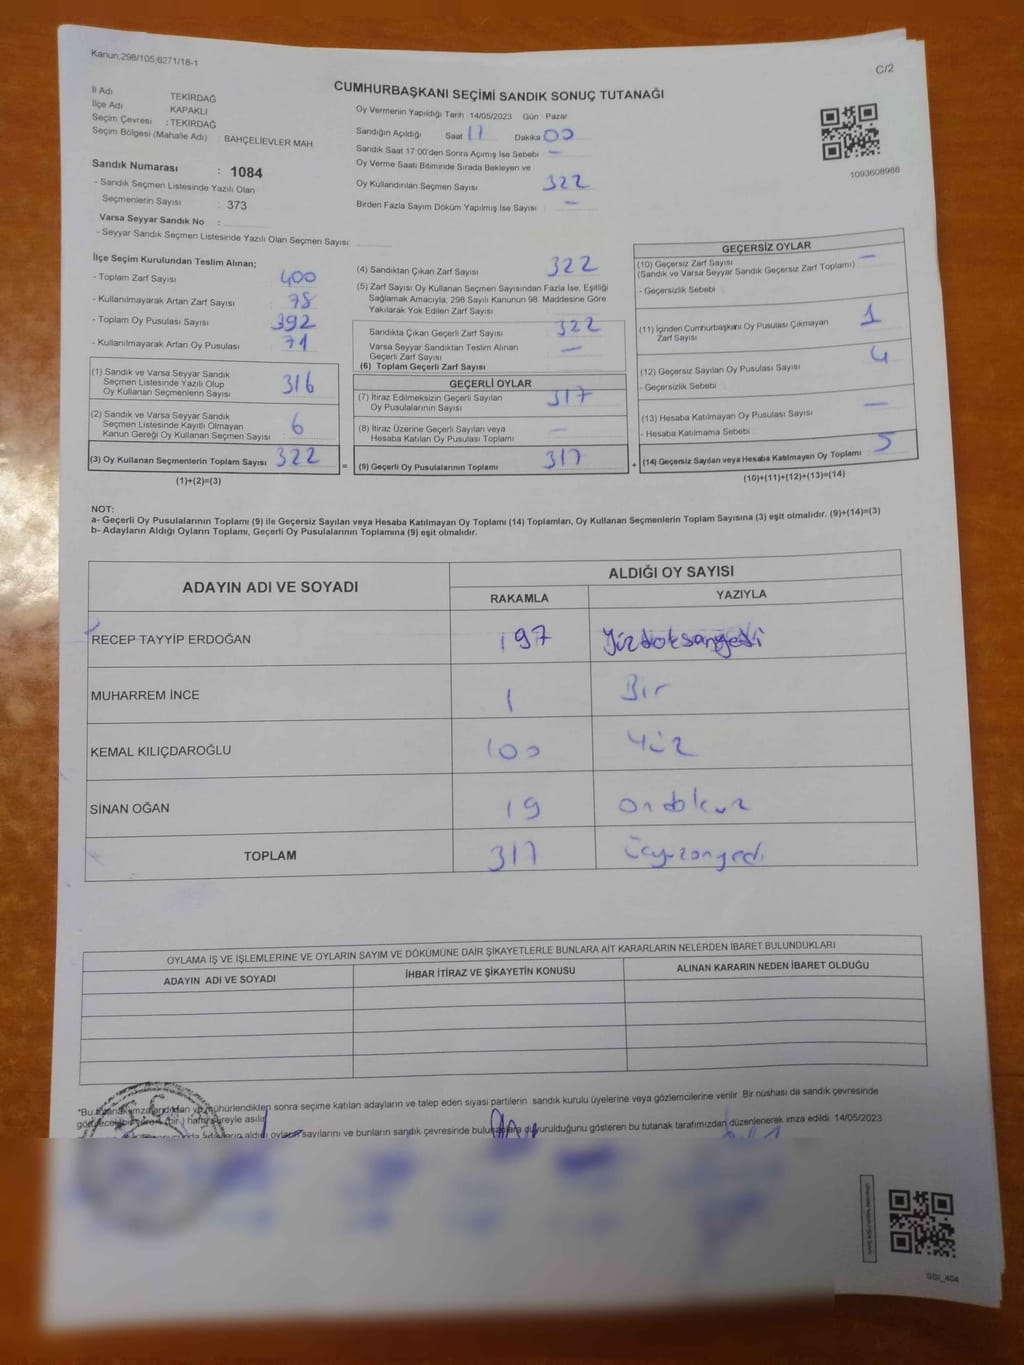 Kanun;298/105;6271/18-1
C/2
CUMHURBAŞKANI SEÇİMİ SANDIK SONUÇ TUTANAĞI
İl Adı TEKİRDAĞ
İlçe Adı KAPAKLI
Seçim Çevresi : TEKİRDAĞ
Seçim Bölgesi (Mahalle Adı) : BAHÇELİEVLER MAH
Sandık Numarası : 1084
- Sandık Seçmen Listesinde Yazılı Olan
Seçmenlerin Sayısı : 373
Varsa Seyyar Sandık No :
- Seyyar Sandık Seçmen Listesinde Yazılı Olan Seçmen Sayısı
Oy Vermenin Yapıldığı Tarih 14/05/2023 Gün : Pazar
Sandığın Açıldığı Saat 11 Dakika 00
Sandık Saat 17:00'den Sonra Açımış İse Sebebi -
Oy Verme Saati Bitiminde Sırada Bekleyen ve
Oy Kullandırılan Seçmen Sayısı 322
Birden Fazla Sayım Döküm Yapılmış İse Sayısı -
1093608988
İlçe Seçim Kurulundan Teslim Alınan;
- Toplam Zarf Sayısı 400
- Kullanılmayarak Artan Zarf Sayısı 78
- Toplam Oy Pusulası Sayısı 392
- Kullanılmayarak Artan Oy Pusulası 71
(1) Sandık ve Varsa Seyyar Sandık
Seçmen Listesinde Yazılı Olup
Oy Kullanan Seçmenlerin Sayısı 316
(2) Sandık ve Varsa Seyyar Sandık
Seçmen Listesinde Kayıtlı Olmayan
Kanun Gereği Oy Kullanan Seçmen Sayısı 6
(3) Oy Kullanan Seçmenlerin Toplam Sayısı 322
(1)+(2)=(3)
(4) Sandıktan Çıkan Zarf Sayısı 322
(5) Zarf Sayısı Oy Kullanan Seçmen Sayısından Fazla İse, Eşitliği
Sağlamak Amacıyla; 298 Sayılı Kanunun 98. Maddesine Göre
Yakılarak Yok Edilen Zarf Sayısı
Sandıkta Çıkan Geçerli Zarf Sayısı 322
Varsa Seyyar Sandıktan Teslim Alınan
Geçerli Zarf Sayısı -
(6) Toplam Geçerli Zarf Sayısı
GEÇERLİ OYLAR
(7) İtiraz Edilmeksizin Geçerli Sayılan
Oy Pusulalarının Sayısı 317
(8) İtiraz Üzerine Geçerli Sayılan veya
Hesaba Katılan Oy Pusulası Toplamı -
= (9) Geçerli Oy Pusulalarının Toplamı 317
GEÇERSİZ OYLAR
(10) Geçersiz Zarf Sayısı -
(Sandık ve Varsa Seyyar Sandık Geçersiz Zarf Toplamı)
- Geçersizlik Sebebi
(11) İçinden Cumhurbaşkanı Oy Pusulası Çıkmayan
Zarf Sayısı 1
(12) Geçersiz Sayılan Oy Pusulası Sayısı 4
- Geçersizlik Sebebi
(13) Hesaba Katılmayan Oy Pusulası Sayısı -
- Hesaba Katılmama Sebebi
+ (14) Geçersiz Sayılan veya Hesaba Katılmayan Oy Toplamı 5
(10)+(11)+(12)+(13)=(14)
NOT:
a- Geçerli Oy Pusulalarının Toplamı (9) ile Geçersiz Sayılan veya Hesaba Katılmayan Oy Toplamı (14) Toplamları, Oy Kullanan Seçmenlerin Toplam Sayısına (3) eşit olmalıdır. (9)+(14)=(3)
b- Adayların Aldığı Oyların Toplamı, Geçerli Oy Pusulalarının Toplamına (9) eşit olmalıdır.
ADAYIN ADI VE SOYADI
ALDIĞI OY SAYISI
RAKAMLA YAZIYLA
RECEP TAYYİP ERDOĞAN 197 Yüzdoksanyedi
MUHARREM İNCE 1 Bir
KEMAL KILIÇDAROĞLU 100 Yüz
SİNAN OĞAN 19 ondokuz
TOPLAM 317 üçyüzonyedi
OYLAMA İŞ VE İŞLEMLERİNE VE OYLARIN SAYIM VE DÖKÜMÜNE DAİR ŞİKAYETLERLE BUNLARA AİT KARARLARIN NELERDEN İBARET BULUNDUKLARI
ADAYIN ADI VE SOYADI
İHBAR İTİRAZ VE ŞİKAYETİN KONUSU
ALINAN KARARIN NEDEN İBARET OLDUĞU
*Bu tutanak imzalandıktan ve mühürlendikten sonra seçime katılan adayların ve talep eden siyasi partilerin sandık kurulu üyelerine veya gözlemcilerine verilir. Bir nüshası da sandık çevresinde
hafta süreyle asılır.
aldığı oyların sayılarını ve bunların sandık çevresinde bulunanlara duyurulduğunu gösteren bu tutanak tarafımızdan düzenlenerek imza edildi. 14/05/2023
SBI_404